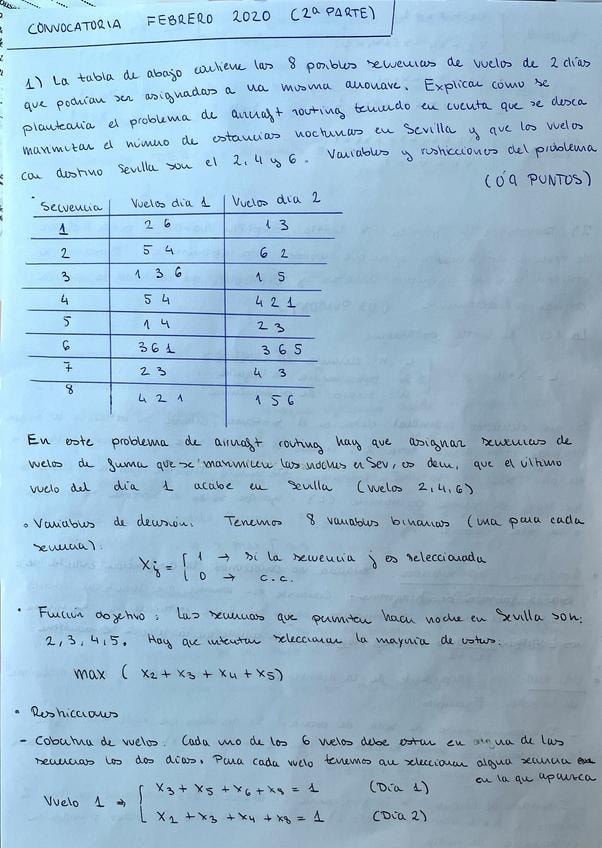 CONVOCATORIA FEBRERO 2020 (2ª PARTE)
1) La tabla de abajo contiene las 8 posibles secuencias de vuelos de 2 días
que podrían ser asignadas a una misma aeronave. Explicar cómo se
plantearía el problema de aircraft routing teniendo en cuenta que se desea
maximizar el número de estancias nocturnas en Sevilla y que los vuelos
con destino Sevilla son el 2, 4 y 6. Variables y restricciones del problema
(0'9 PUNTOS)
Secuencia Vuelos día 1 Vuelos día 2
1 2 6 1 3
2 5 4 6 2
3 1 3 6 1 5
4 5 4 4 2 1
5 1 4 2 3
6 3 6 1 3 6 5
7 2 3 4 3
8 4 2 1 1 5 6
En este problema de aircraft routing hay que asignar secuencias de
vuelos de forma que se maximicen las noches en Sev, es decir, que el último
vuelo del día 1 acabe en Sevilla (vuelos 2, 4, 6)
• Variables de decisión: Tenemos 8 variables binarias (una para cada
secuencia):
Xj = { 1 → si la secuencia j es seleccionada
0 → c.c.
• Función objetivo: Las secuencias que permiten hacer noche en Sevilla son:
2, 3, 4, 5. Hay que intentar seleccionar la mayoría de estas.
max ( X2 + X3 + X4 + X5)
• Restricciones
- Cobertura de vuelos: Cada uno de los 6 vuelos debe estar en alguna de las
secuencias los dos días. Para cada vuelo tenemos que seleccionar alguna secuencia
en la que aparezca
Vuelo 1 ⇒ { X3 + X5 + X6 + X8 = 1 (Día 1)
X2 + X3 + X4 + X8 = 1 (Día 2)